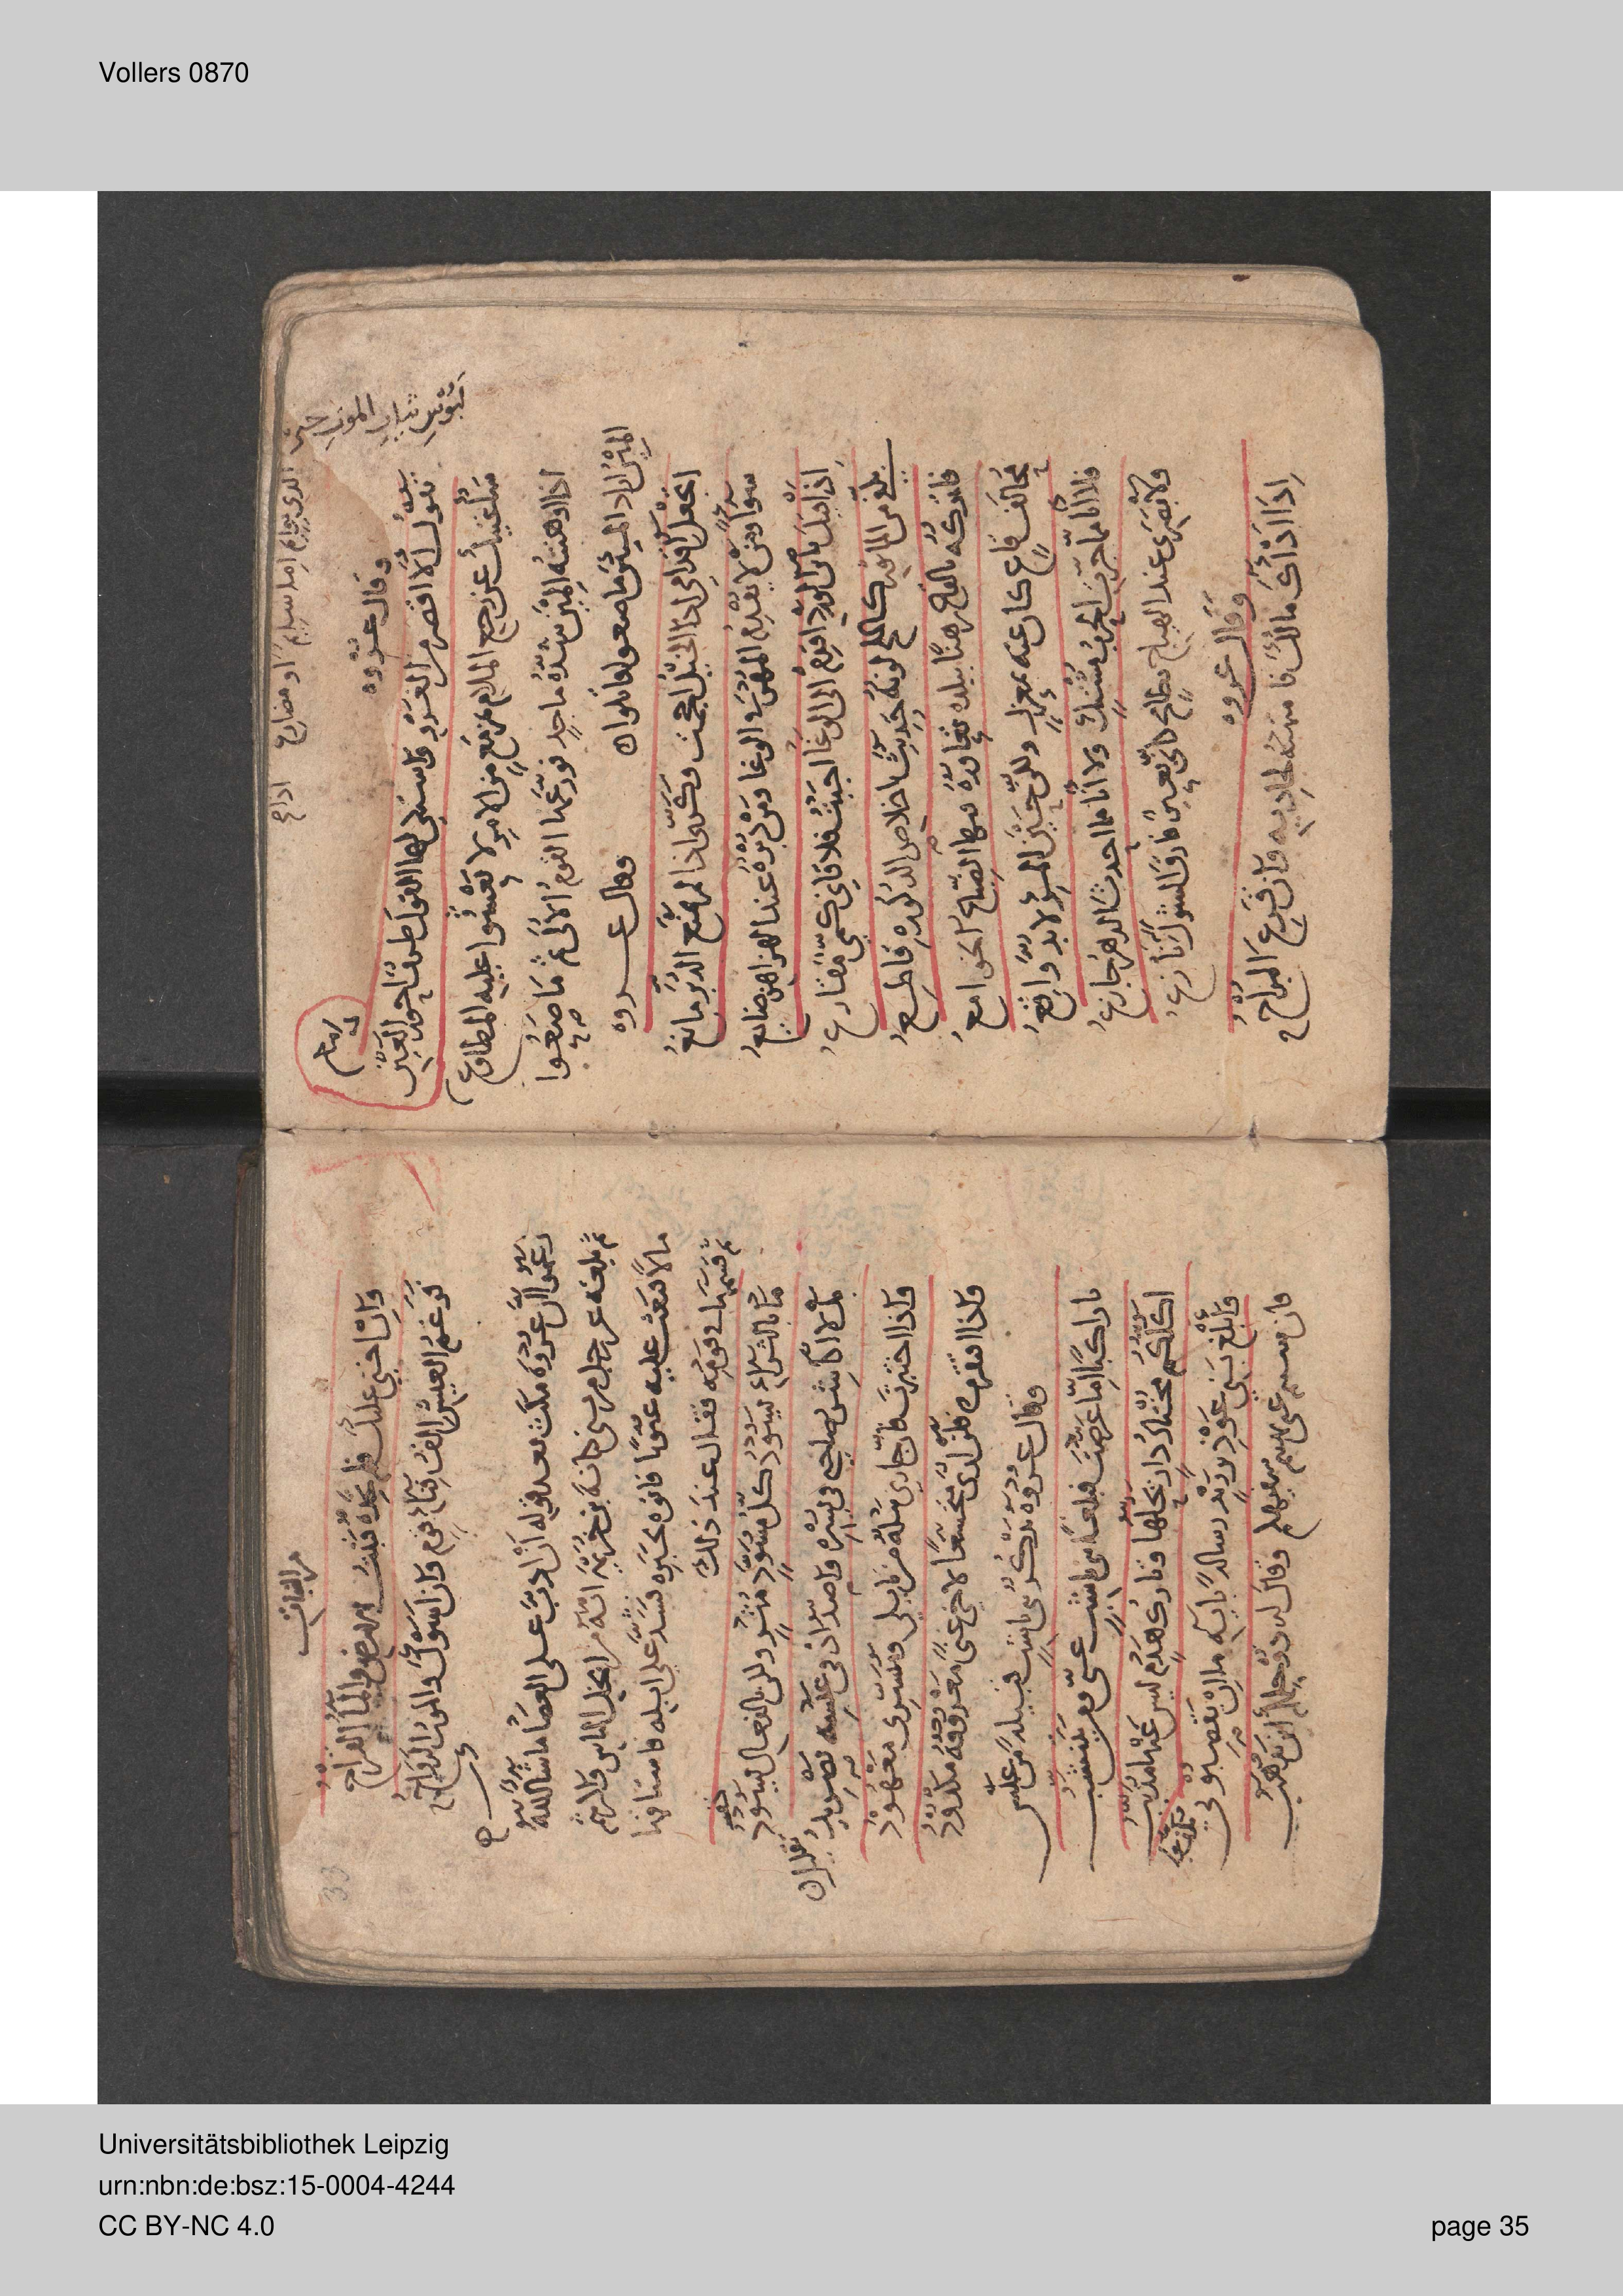 Vollers 0870
لبوس ثياب الموت حتى
الذي يوائم اما سوام او مصارع
وقال عروة
تقول ألا اقصر من الغزو واشتكى لها القول طرف احور العين دامع
سأغنيك عن رجع الملام بمزمع من الامر لا يعشو عليه المطاوع
اذا اوهنته المين شدة ماجد فورعها القوم الألى ثم ماصعوا
المين اراد المئين ماصعوا قاتلوا
وقال عروة
اتجعل اقدامي اذا الخيل احجمت وكري اذا لم يمنع الدبر مانع
سوآ ومن لا يقدم المهر في الوغا ومن دبره عند الهزاهز ضايع
اذا قيل يابن الورد اقدم الى الوغا اجبت فلاقاني كمي مقارع
بكفي من الماثور كالملح لونه حديث باخلاص الذكورة قاطع
فاتركه بالقاع رهنا ببلدة تعاوره فيها الضباع الخوامع
محالف قاع كان عنه بمعزل ولكن حين المرء لا بد واقع
فلا انا مما جرت الحرب مشتك ولا انا مما احدث الدهر جازع
ولا بصري عند الهياج بطامح كاني بعير فارق الشول نازع
وقال عروه
اذا اذاك مالك فامتهنه لجاديه وان قرع المراح
وان اخنى عليك فلم تجده فنبت الارض والمآ القراح
فرغم العيش الف فنآ قوم وان اسوك والموت الرواح
زعموا ان عروة مكث بعد قوله ان ادب على العصا ما شا الله
ثم بلغه عن رجل من بني كنانة بن خزيمة انه من ابخل الناس واكثرهم
مالا فبعث عليه عيونا فاتوه بخبره فشد على ابله فاستاقها
ثم قسمها في قومه فقال عند ذلك
ما بالثراء يسود كل مسود مثر ولكن بالفعال يسود
بل لا اكاثر صاحبي في يسره واصد اذ في عيشه تصريد
واذا اختبرت فان جاري نيله من نايلي وميسري معهود
واذا افتقرت فلن ارى متخشعا لاخي غنى معروفه مكدود
وقال عروه يذكر بني ناشب قبيلة من عبس
يا راكبا اما عرضت فبلغا بني ناشب عني ومن يتنشب
اكلكم مختار دار يحلها وتارك هدم ليس عنها مذنب
وابلغ بني عوذ بن زيد رسالة باية ما ان يقصبوني
فان شيتم عني نهيتم سفيهكم وقال له ذو حلمكم اين تذهب
Universitätsbibliothek Leipzig
urn:nbn:de:bsz:15-0004-4244
CC BY-NC 4.0
page 35